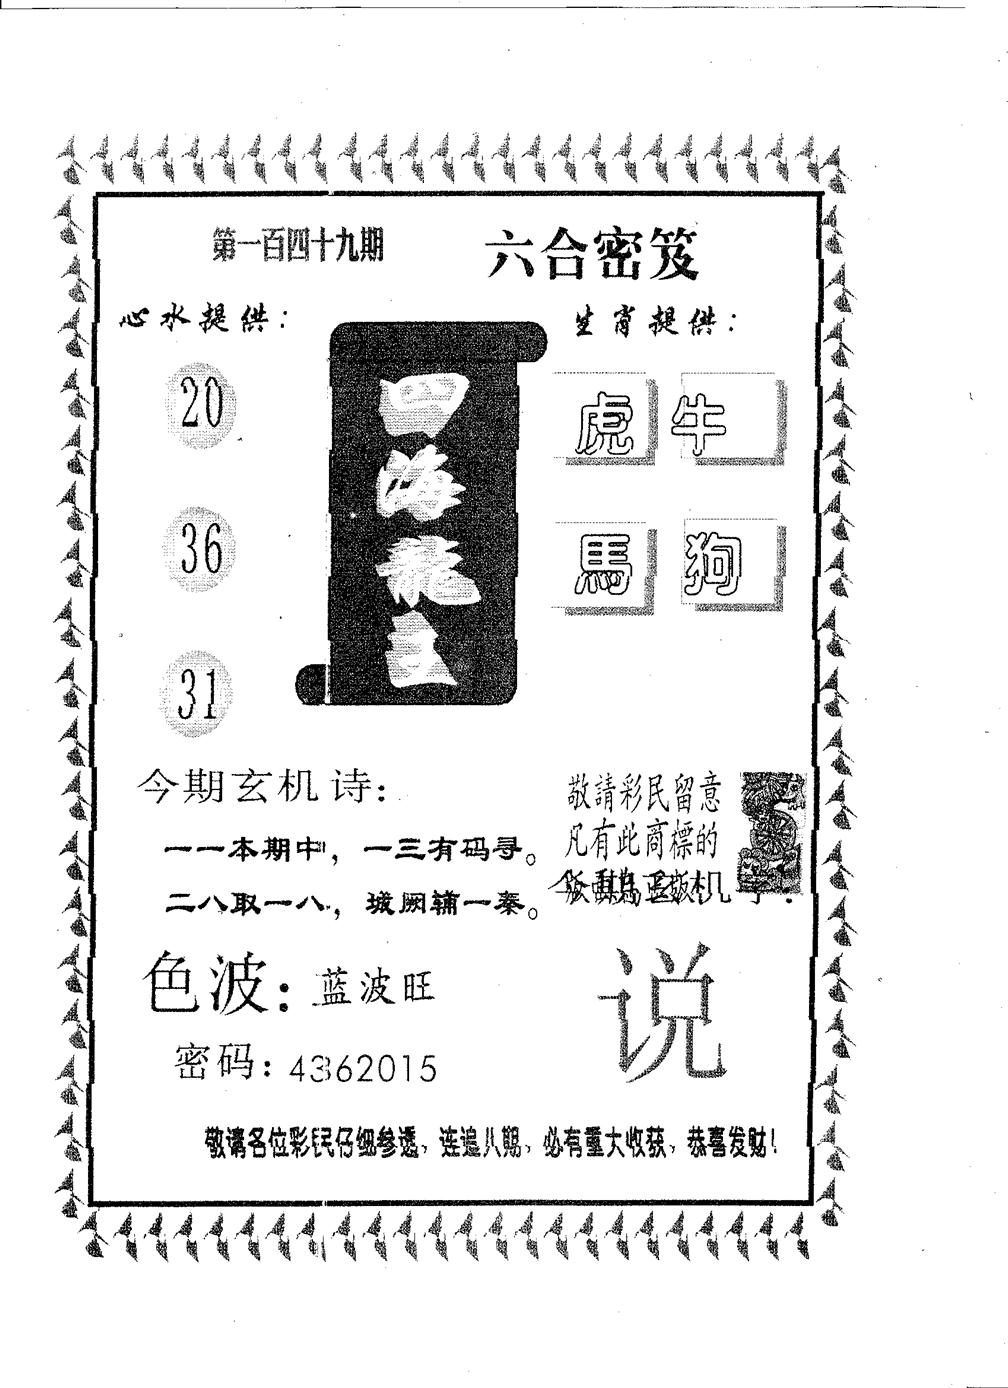 第一百四十九期
六合密笈
心水提供：
生肖提供：
20
36
31
四
海
龍
虎 牛
馬 狗
今期玄机诗：
一一本期中，一三有码寻。
二八取一八，城阙辅一秦。
敬請彩民留意
凡有此商標的
色波：蓝波旺
密码：4362015
说
敬请各位彩民仔细参透，连追八期，必有重大收获，恭喜发财！